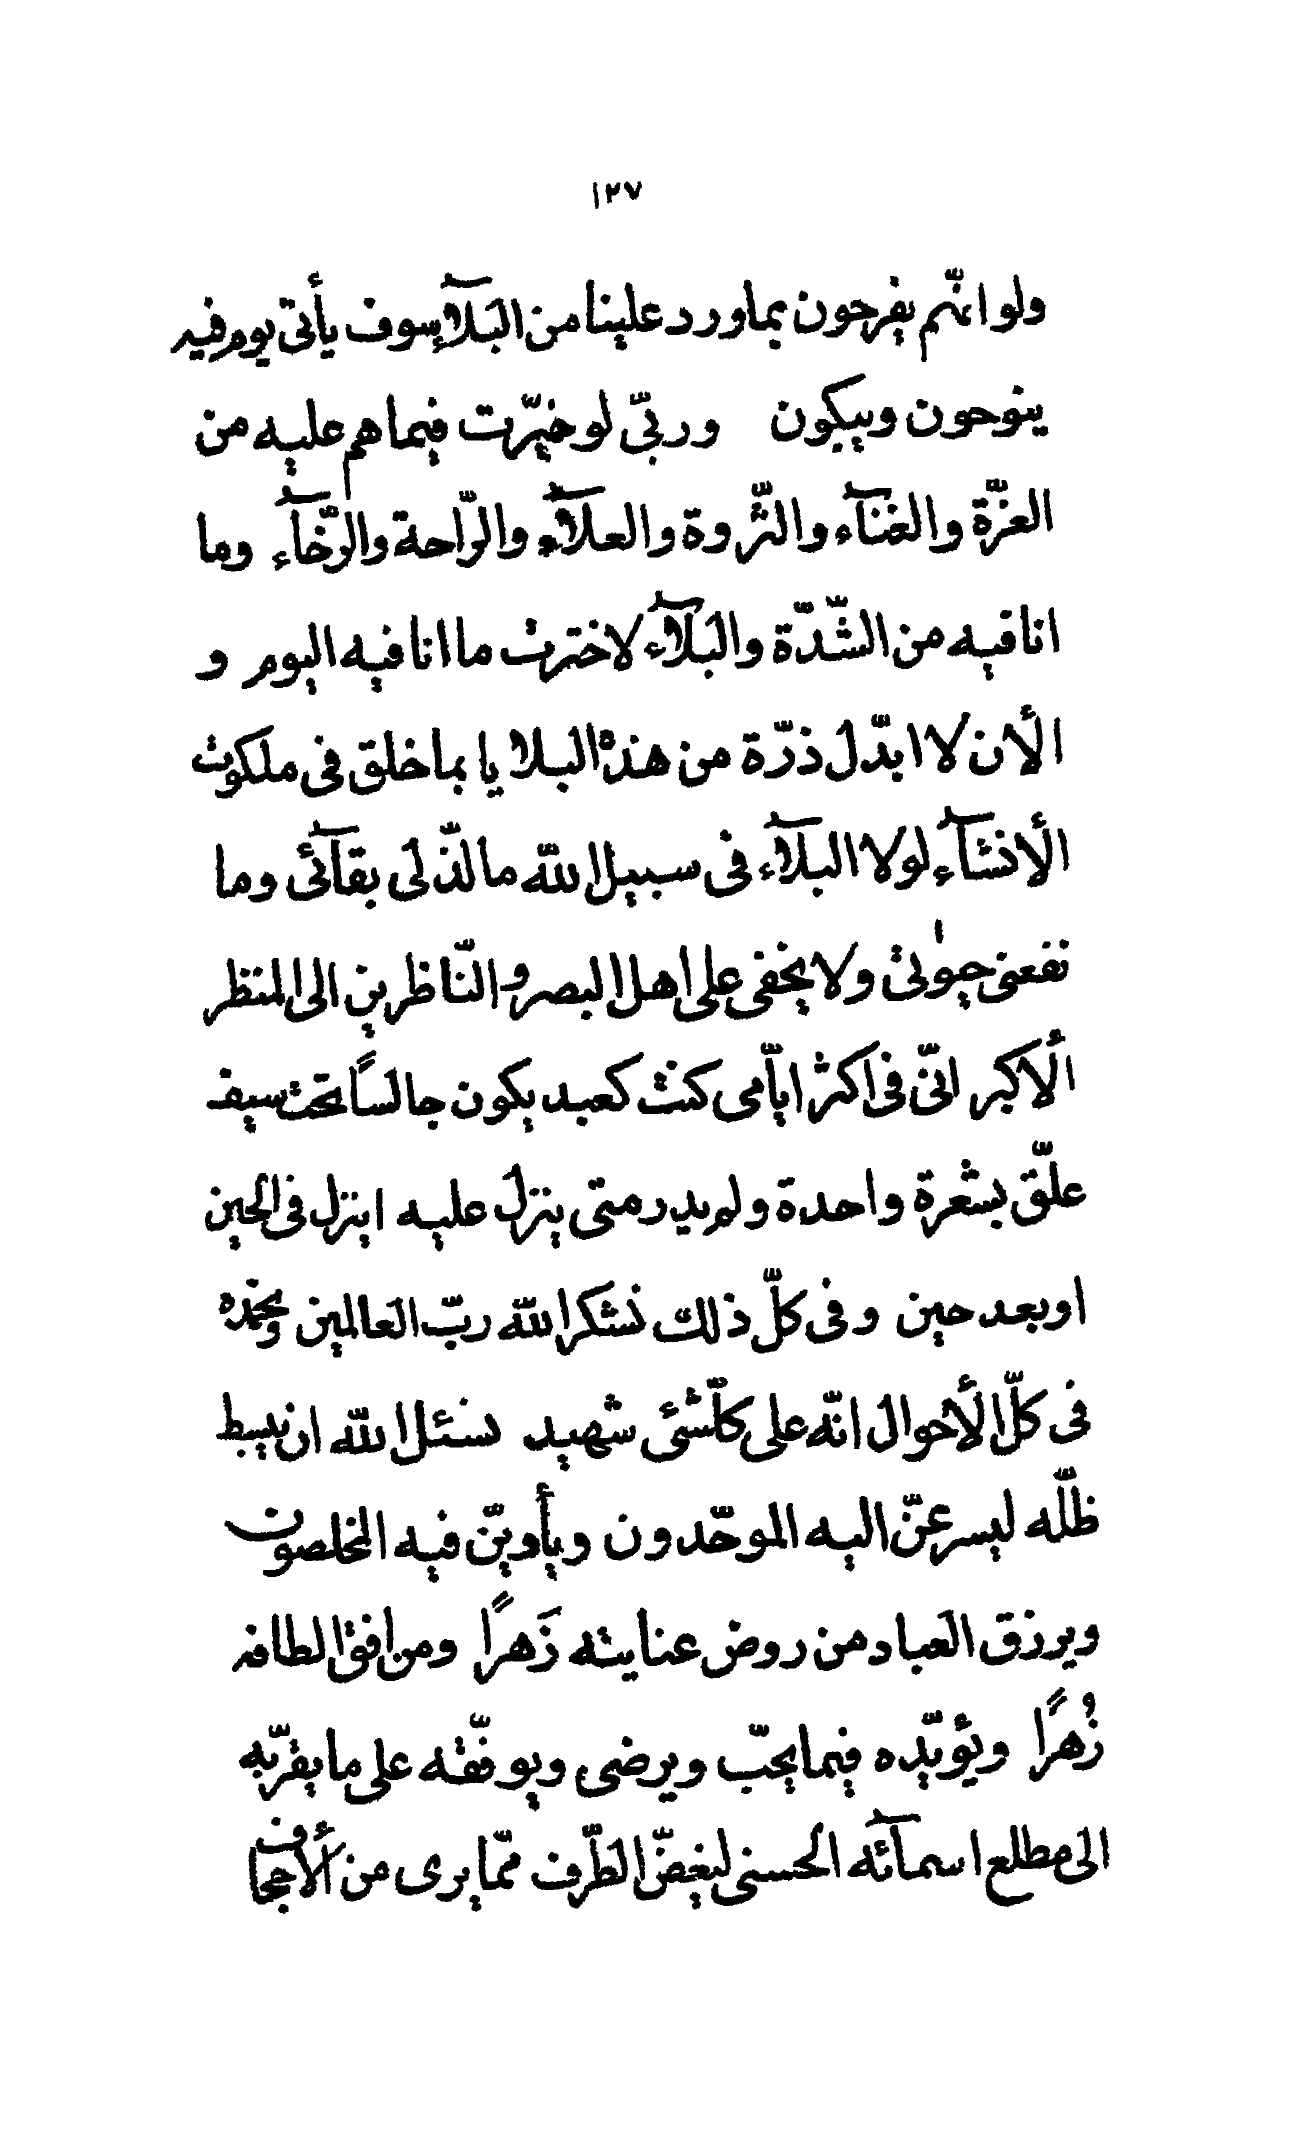 ١٢٧
ولو انّهم يفرحون بما ورد علينا من البلآء سوف يأتى يوم فيه
ينوحون ويبكون وربّى لو خيّرت فيما هم عليه من
العزّة والغنآء والثّروة والعلآء والرّاحة والرّخآء وما
انا فيه من الشّدّة والبلآء لاخترت ما انا فيه اليوم و
الأن لا ابدّل ذرّة من هذه البلايا بما خلق فى ملكوت
الأنشآء لولا البلآء فى سبيل اللّه ما لذّ لى بقآئى وما
نفعنى حيوٰتى ولا يخفى على اهل البصر والنّاظرين الى المنظر
الأكبر انّى فى اكثر ايّامى كنت كعبد يكون جالسًا تحت سيف
علّق بشعرة واحدة ولم يدر متى ينزل عليه اينزل فى الحين
او بعد حين وفى كلّ ذلك نشكر اللّه ربّ العالمين ونحمده
فى كلّ الأحوال انّه على كلّشئ شهيد نسئل اللّه ان يبسط
ظلّه ليسرعنّ اليه الموحّدون ويأوينّ فيه المخلصون
ويرزق العباد من روض عنايته زَهرًا ومن افق الطافه
زُهرًا ويؤيّده فيما يحبّ ويرضى ويوفّقه على ما يقرّبه
الى مطلع اسمآئه الحسنى ليغضّ الطّرف ممّا يرى من الأجحاف